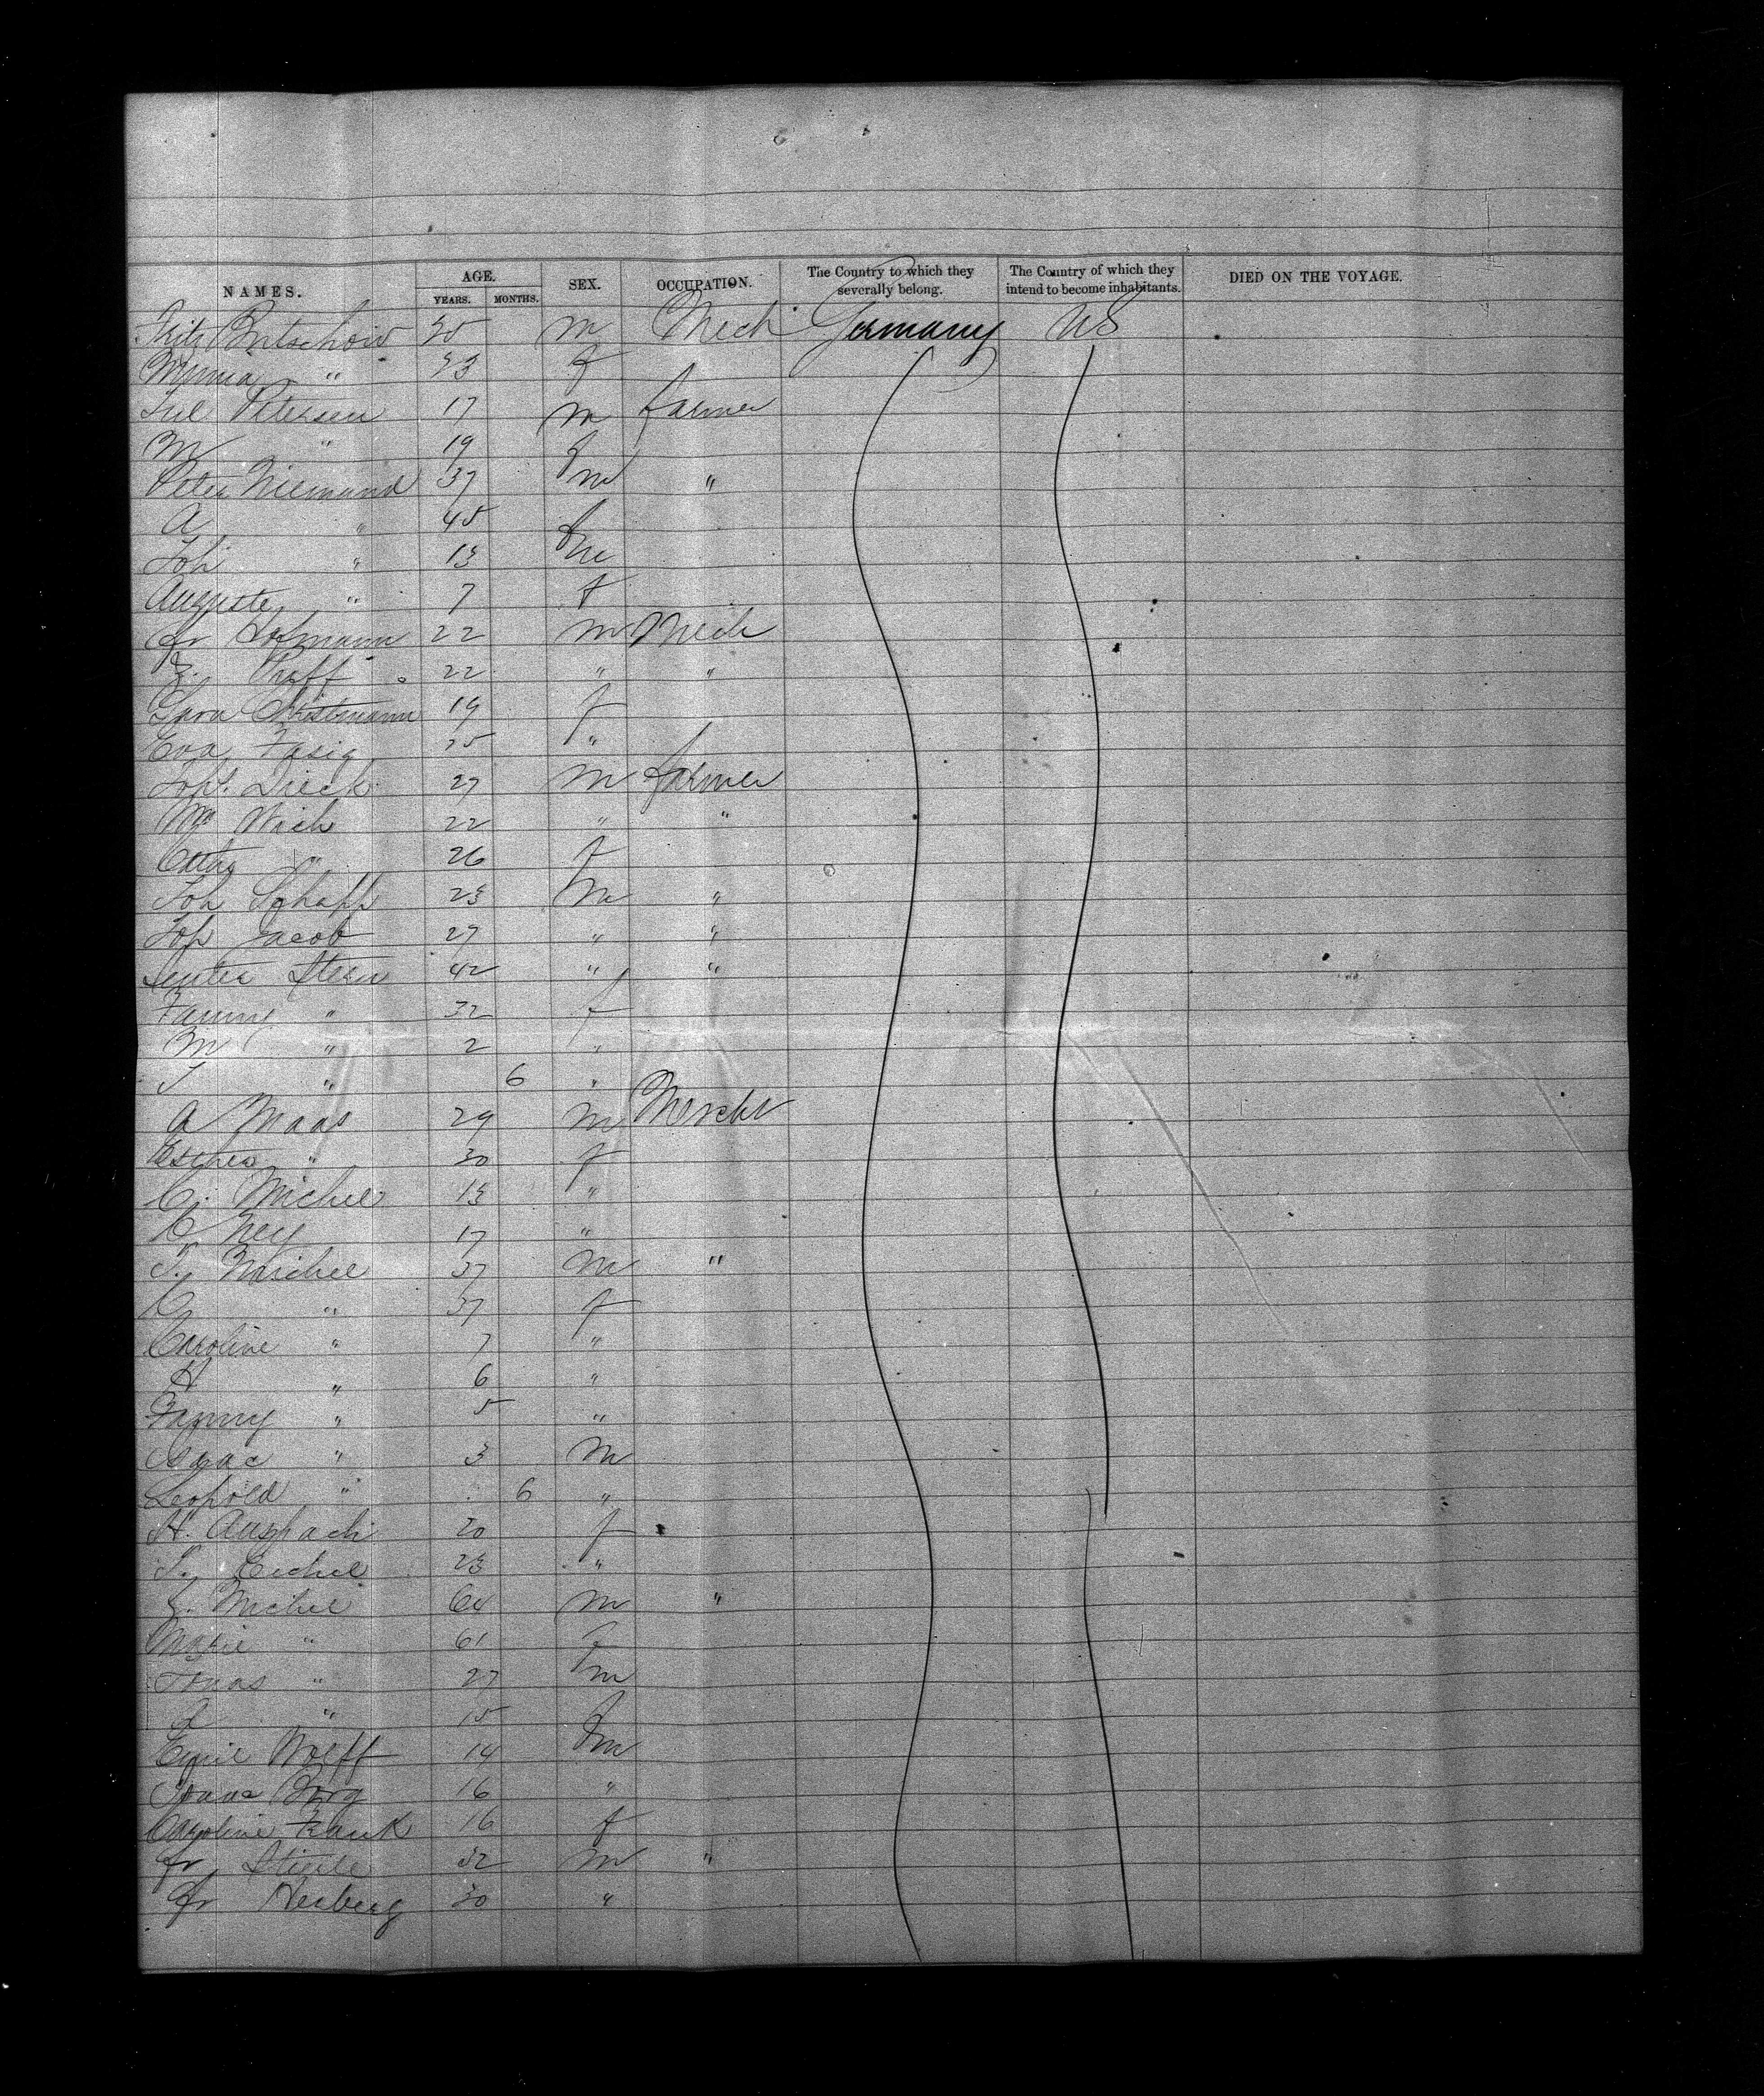 NAMES. AGE. SEX. OCCUPATION. The Country to which they severally belong. The Country of which they intend to become inhabitants. DIED ON THE VOYAGE.
YEARS. MONTHS.
Fritz 30 m Mech Germany US
" 33 f
Jul Petersen 17 m farmer
M " 19 f
Peter Niemand 37 m "
A " 45 f
Joh " 13 m
Auguste " 7 f
Fr Hofmann 22 m Mech
22 " "
Christmann 19 f
Eva Fasig "
Joh. Dieck 27 m farmer
Wm Wich 22 " "
Cath " 26 f
Joh Schaff 23 m "
Jos Jacob 27 " "
Stern 42 " "
Fanny " 32 f
M " 2 "
J " 6 "
A Maas 29 m Mercht
Esther " 30 f
C. Michel 13 "
C Ney 17 "
J. Michel 37 m "
C " 37 f
Caroline " 7 "
H " 6 "
Fanny " 5 "
Isaac " 3 m
Leopold " 6 "
H. Auspach 20 f
S. 23 "
Michel m "
Marie " 61 f
Jonas " 27 m
" 15 f
Emil Wolff 14 m
16 "
Caroline Frank 16 f
Fr 32 m "
Fr Herberg 30 "